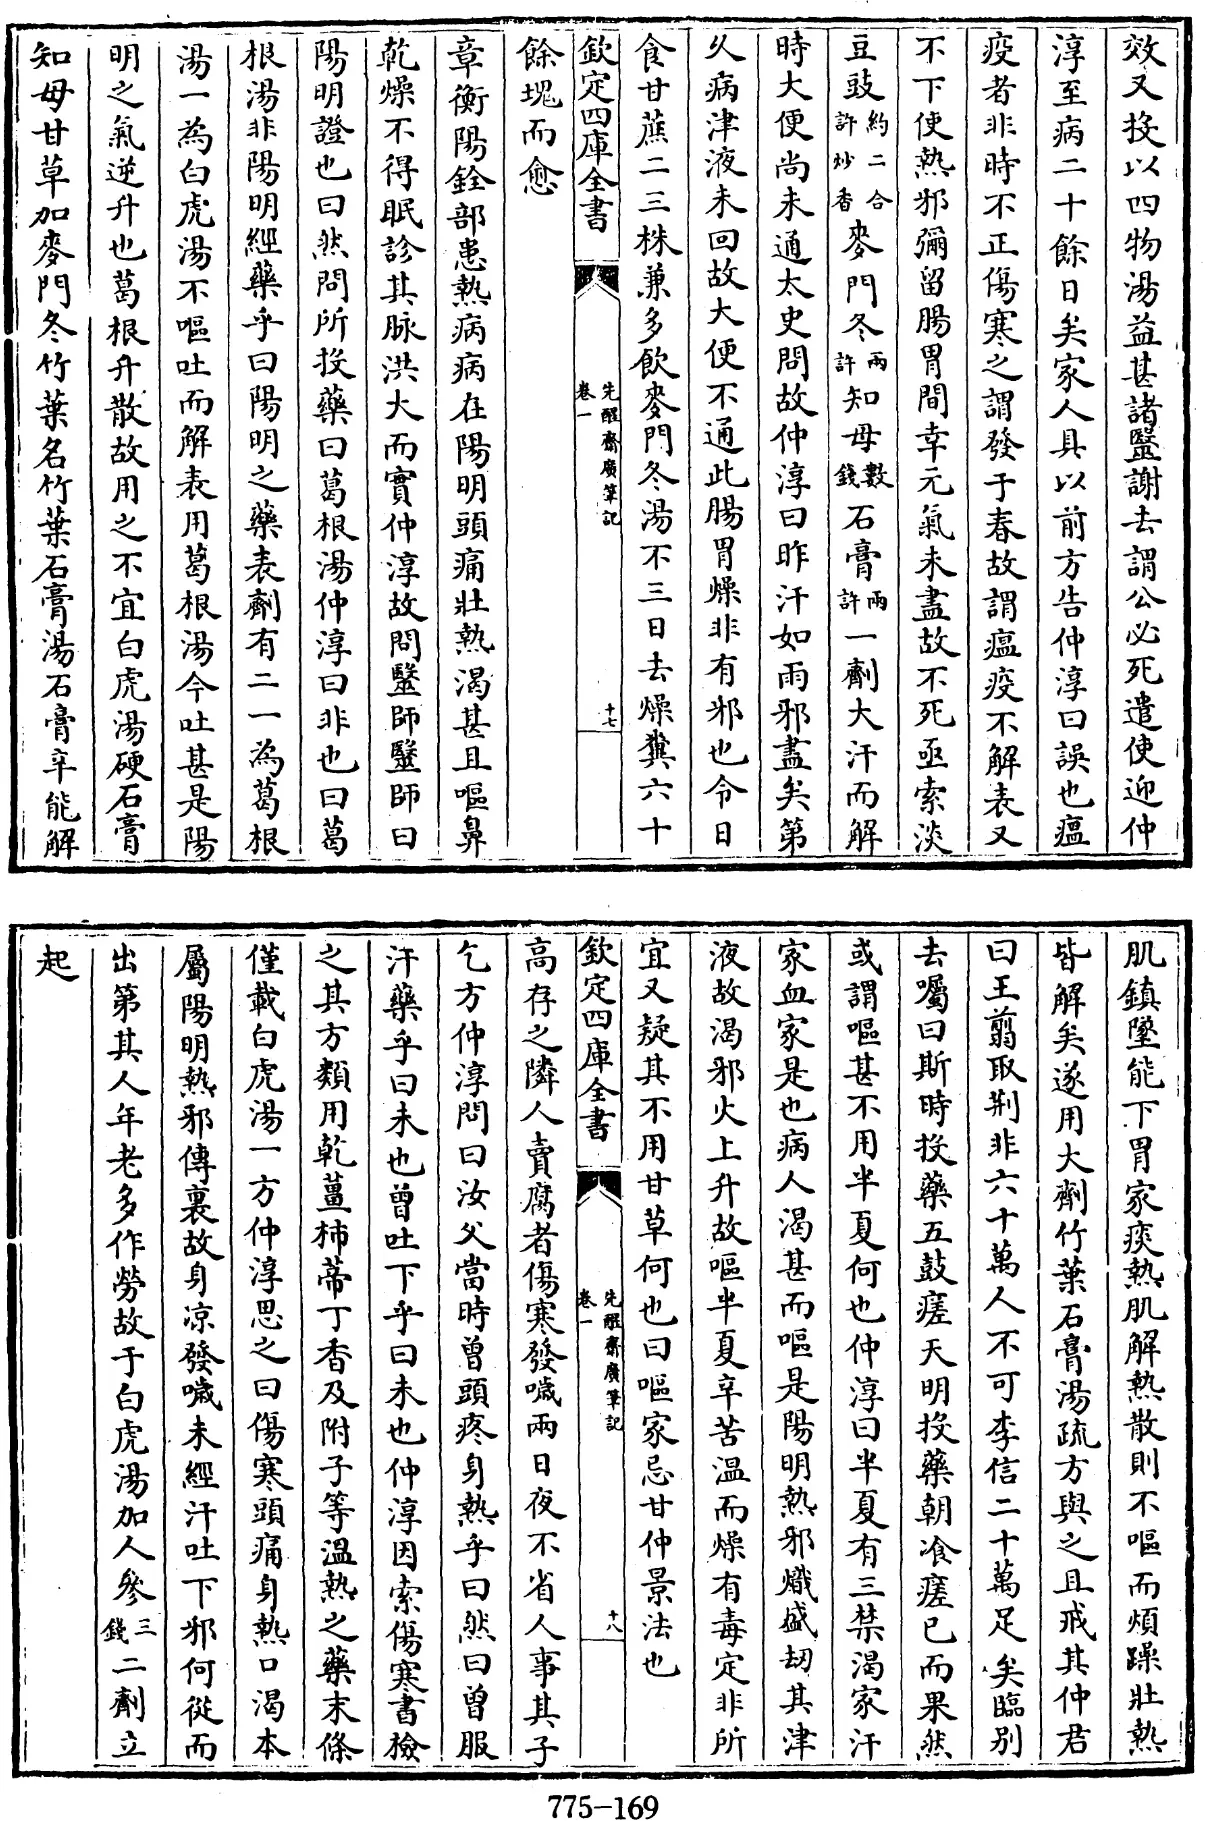 效又投以四物湯益甚諸醫謝去謂公必死遣使迎仲
淳至病二十餘日矣家人具以前方告仲淳曰誤也瘟
疫者非時不正傷寒之謂發于春故謂瘟疫不解表又
不下使熱邪彌留腸胃間幸元氣未盡故不死亟索淡
豆豉約二合許炒香麥門冬兩許知母數錢石膏兩許一劑大汗而解
時大便尚未通太史問故仲淳曰昨汗如雨邪盡矣第
久病津液未回故大便不通此腸胃燥非有邪也令日
食甘蔗二三株兼多飲麥門冬湯不三日去燥糞六十
欽定四庫全書 先醒齋廣筆記 卷一 十七
餘塊而愈
章衡陽銓部患熱病病在陽明頭痛壯熱渴甚且嘔鼻
乾燥不得眠診其脉洪大而實仲淳故問醫師醫師曰
陽明證也曰然問所投藥曰葛根湯仲淳曰非也曰葛
根湯非陽明經藥乎曰陽明之藥表劑有二一為葛根
湯一為白虎湯不嘔吐而解表用葛根湯今吐甚是陽
明之氣逆升也葛根升散故用之不宜白虎湯硬石膏
知母甘草加麥門冬竹葉名竹葉石膏湯石膏辛能解
肌鎮墜能下胃家痰熱肌解熱散則不嘔而煩躁壯熱
皆解矣遂用大劑竹葉石膏湯疏方與之且戒其仲君
曰王翦取荆非六十萬人不可李信二十萬足矣臨别
去囑曰斯時投藥五鼓瘥天明投藥朝飡瘥已而果然
或謂嘔甚不用半夏何也仲淳曰半夏有三禁渴家汗
家血家是也病人渴甚而嘔是陽明熱邪熾盛刼其津
液故渴邪火上升故嘔半夏辛苦温而燥有毒定非所
宜又疑其不用甘草何也曰嘔家忌甘仲景法也
欽定四庫全書 先醒齋廣筆記 卷一 十八
高存之隣人賣腐者傷寒發噦兩日夜不省人事其子
乞方仲淳問曰汝父當時曾頭疼身熱乎曰然曰曾服
汗藥乎曰未也曾吐下乎曰未也仲淳因索傷寒書檢
之其方類用乾薑柿蒂丁香及附子等温熱之藥末條
僅載白虎湯一方仲淳思之曰傷寒頭痛身熱口渴本
屬陽明熱邪傳裏故身凉發噦未經汗吐下邪何從而
出第其人年老多作勞故于白虎湯加人參三錢二劑立
起
775-169